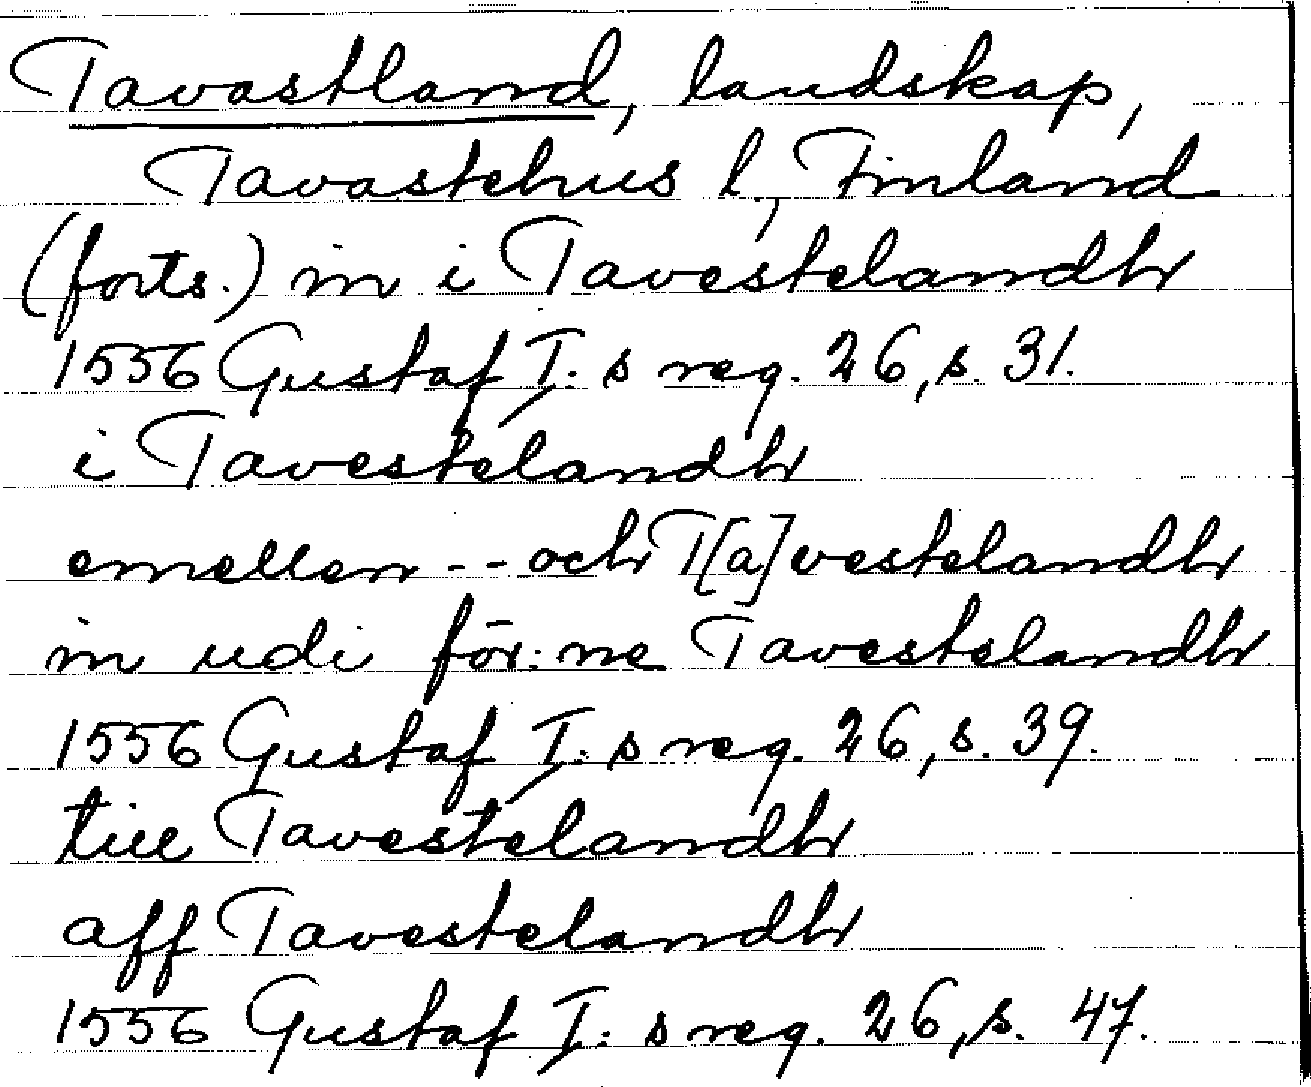 Tavastland, landskap,
Tavastehus l, Finland
(forts.) in i Tavestelandh
1556 Gustaf I: s reg. 26, s. 31.
i Tavestelandh
emellen -- och T[a]vestelandh
in udi för:ne Tavestelandh
1556 Gustaf I: s reg. 26, s. 39.
till Tavestelandh
aff Tavestelandh
1556 Gustaf I: s reg. 26, s. 47.